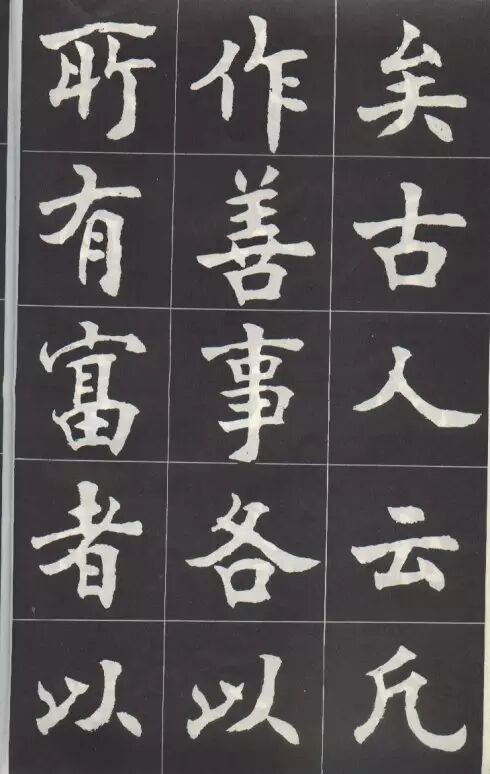 矣古人云凡
作善事各以
所有富者以